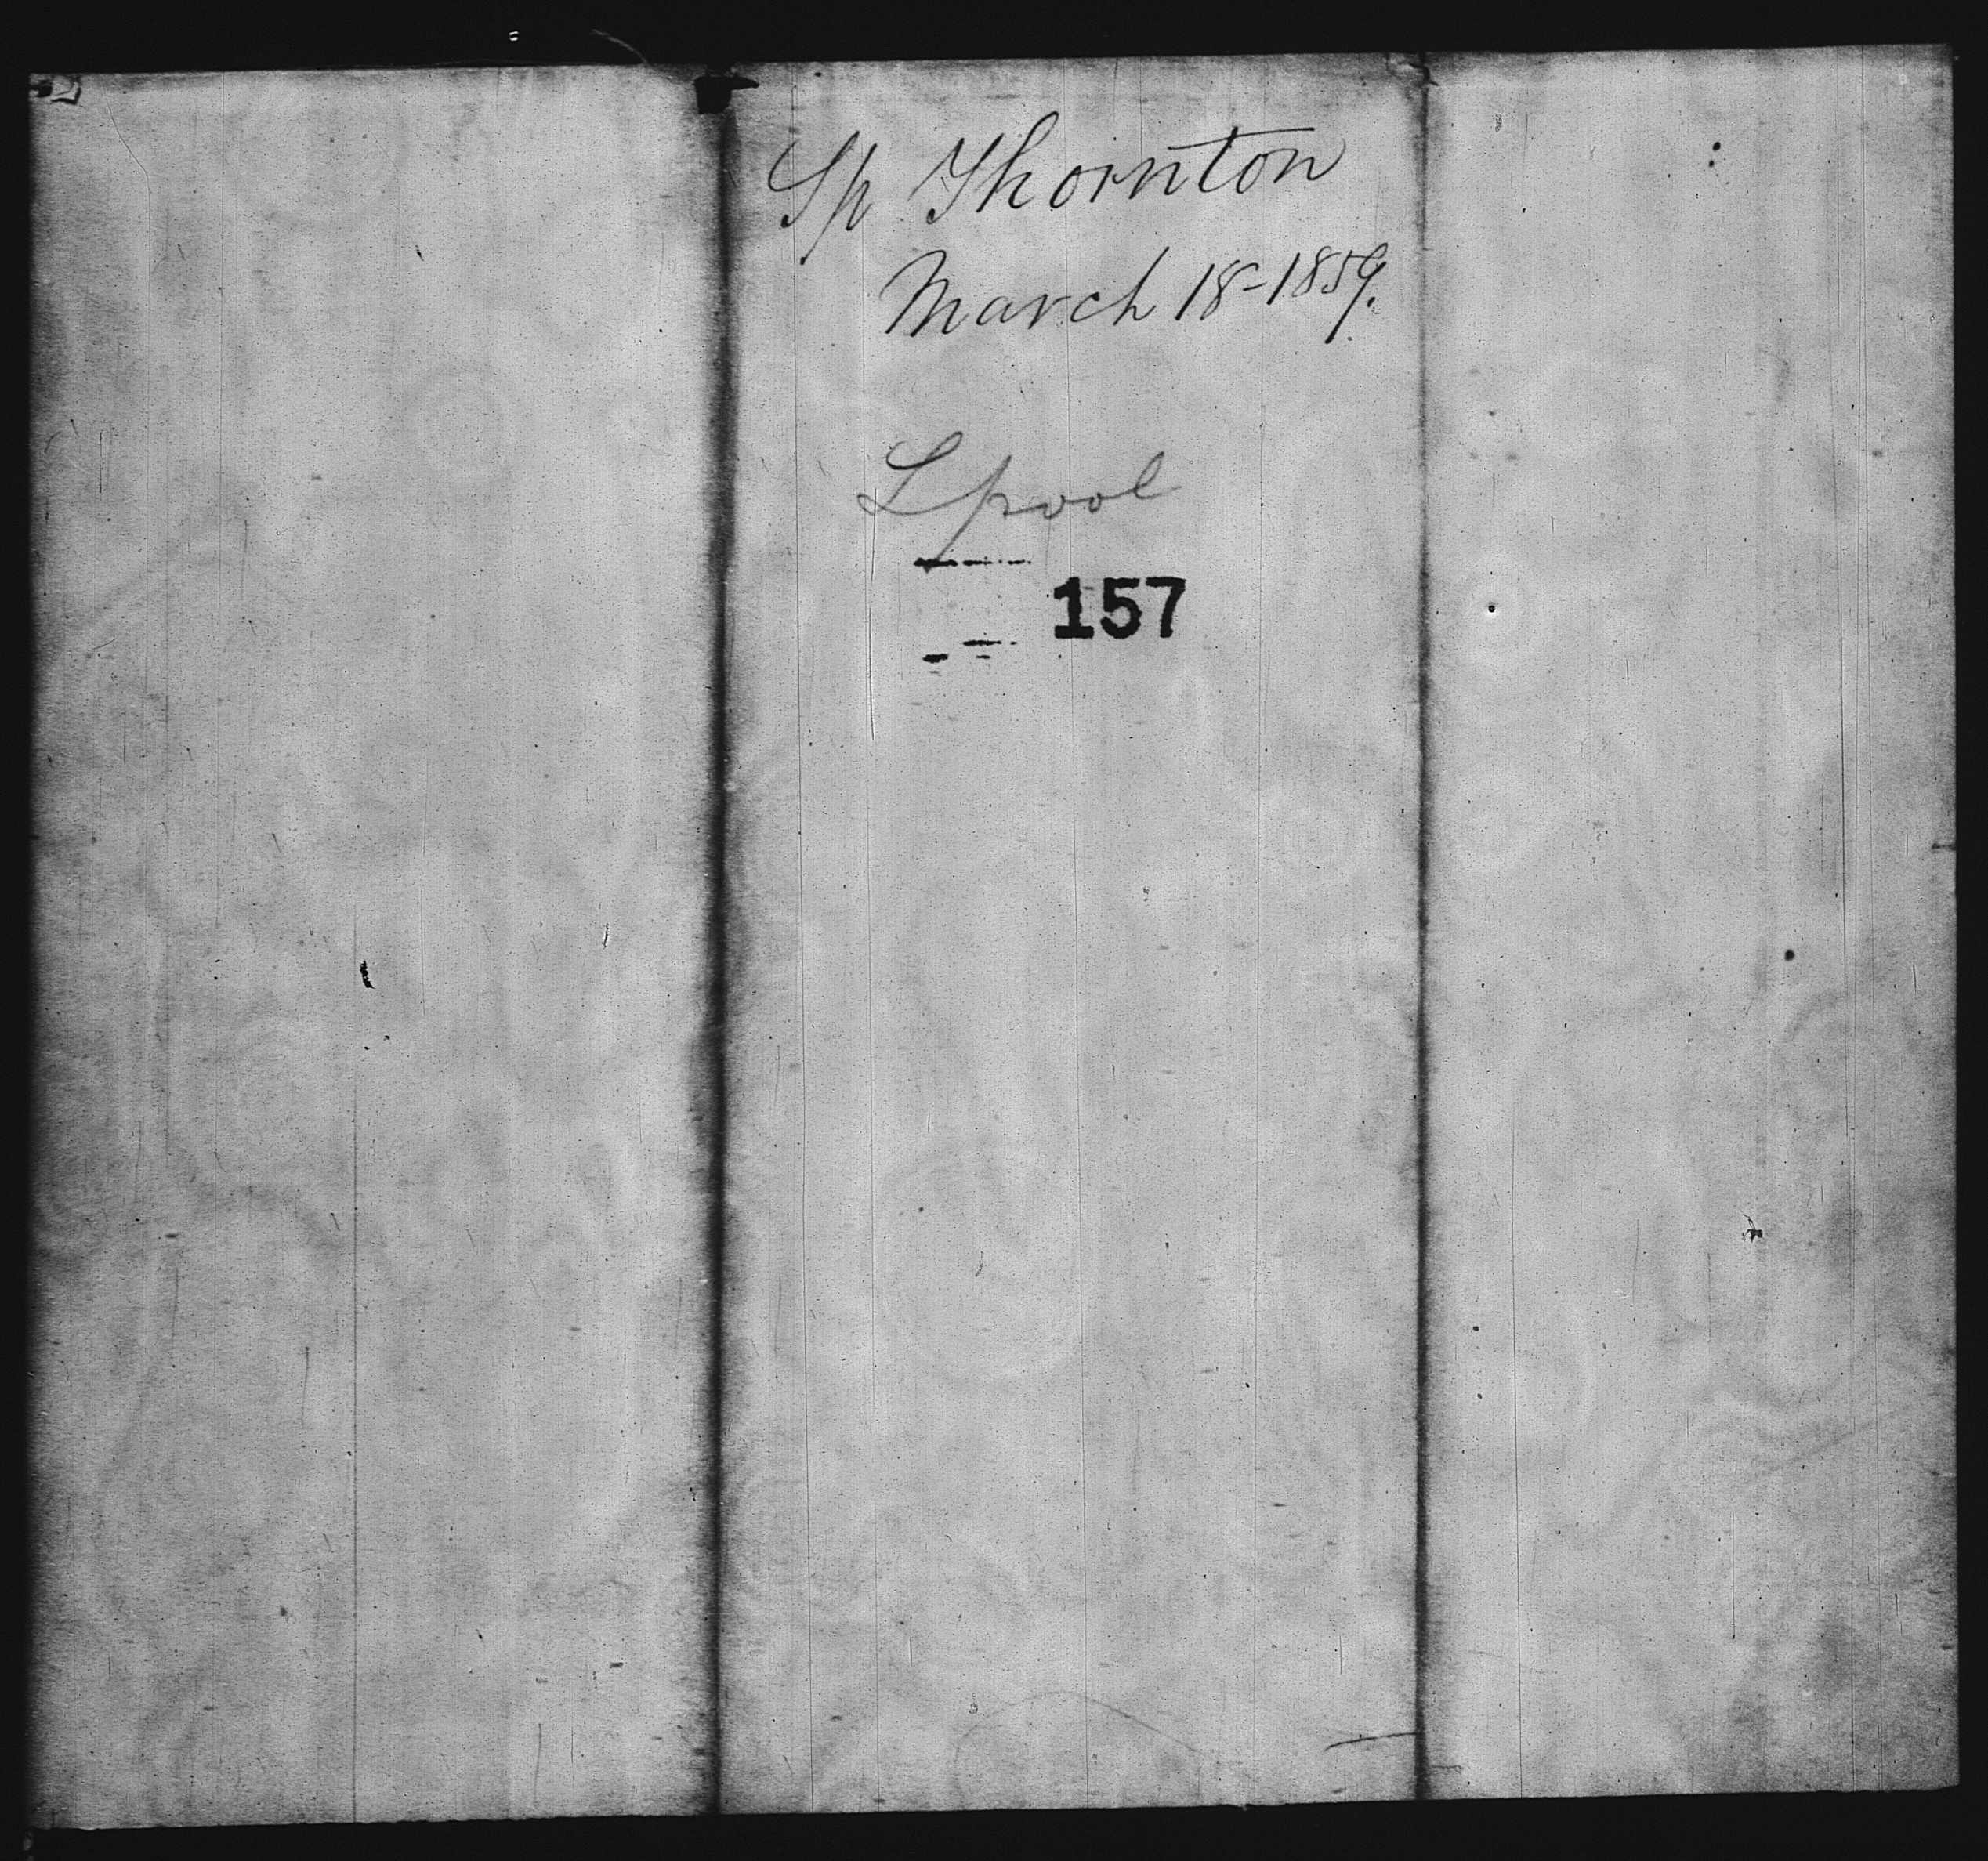 Sp Thornton
March 18-1859.
Lpool
157